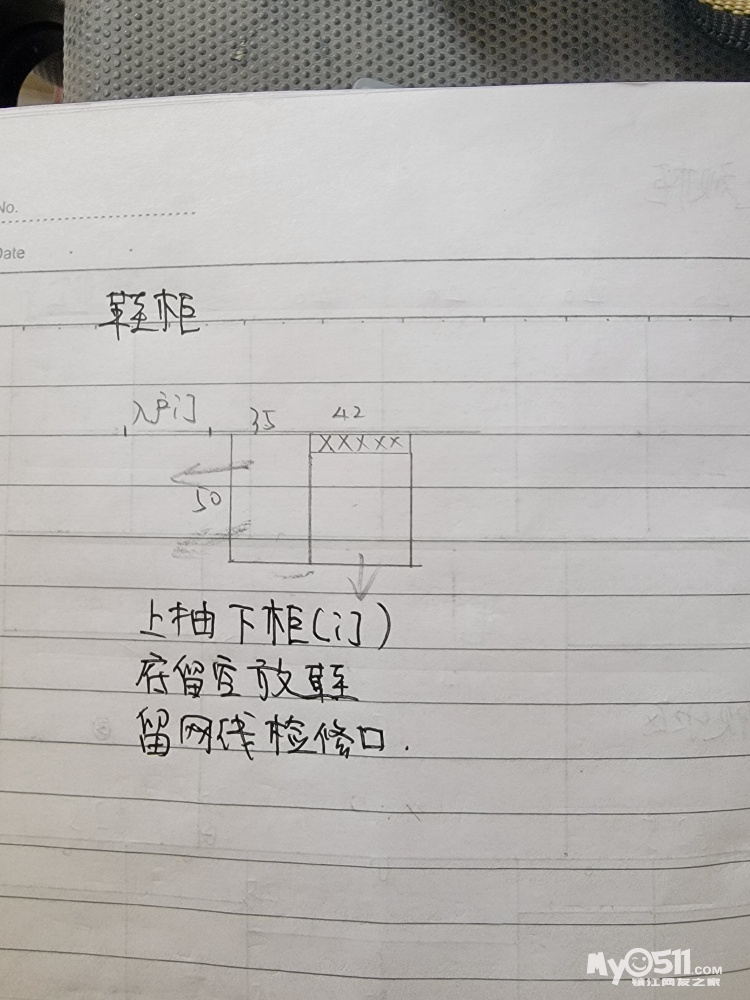 No.
Date
鞋柜
入户门 35 42
XXXXX
50
上抽下柜(门)
底留空放鞋
留网线检修口.
My0511.COM
镇江网友之家